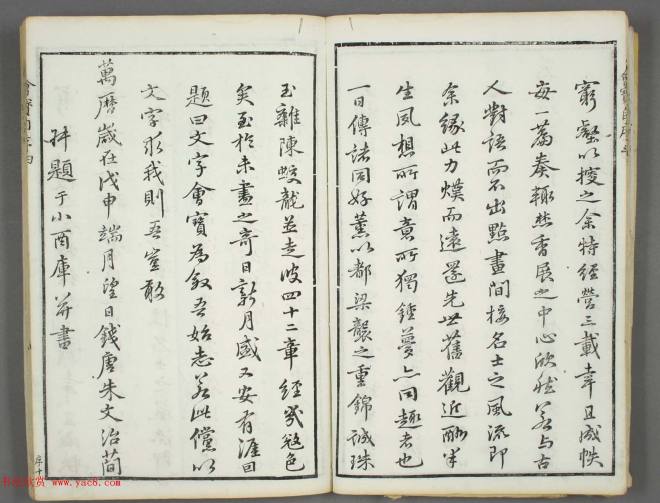 窮壑以授之余特經營三載幸且成帙
每一篇奏輒焚香展之中心欣然若与古
人對語而不出點畫間接名士之風流即
余緣此力模而遠還先世舊觀近酬半
生夙想所謂意所獨鍾夢亦同趣者也
一日傳諸同好薰以都梁襲之重錦誠珠
玉雜陳蛟龍並走彼四十二章經義
矣至於未盡之奇日新月盛又安有涯因
題曰文字會寶為叙吾始志若此儻以
文字求我則吾豈敢
萬曆歲在戊申端月望日錢唐朱文治簡
拜題于小酉庫并書
序十
www.yac8.com